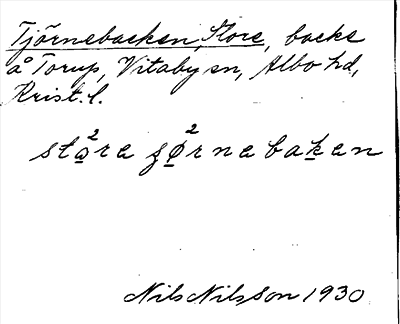 Tjörnebacken, Store, backe
å Torup, Vitaby sn, Albo hd,
Krist. l.
2 2
store jørnebaken
Nils Nilsson 1930